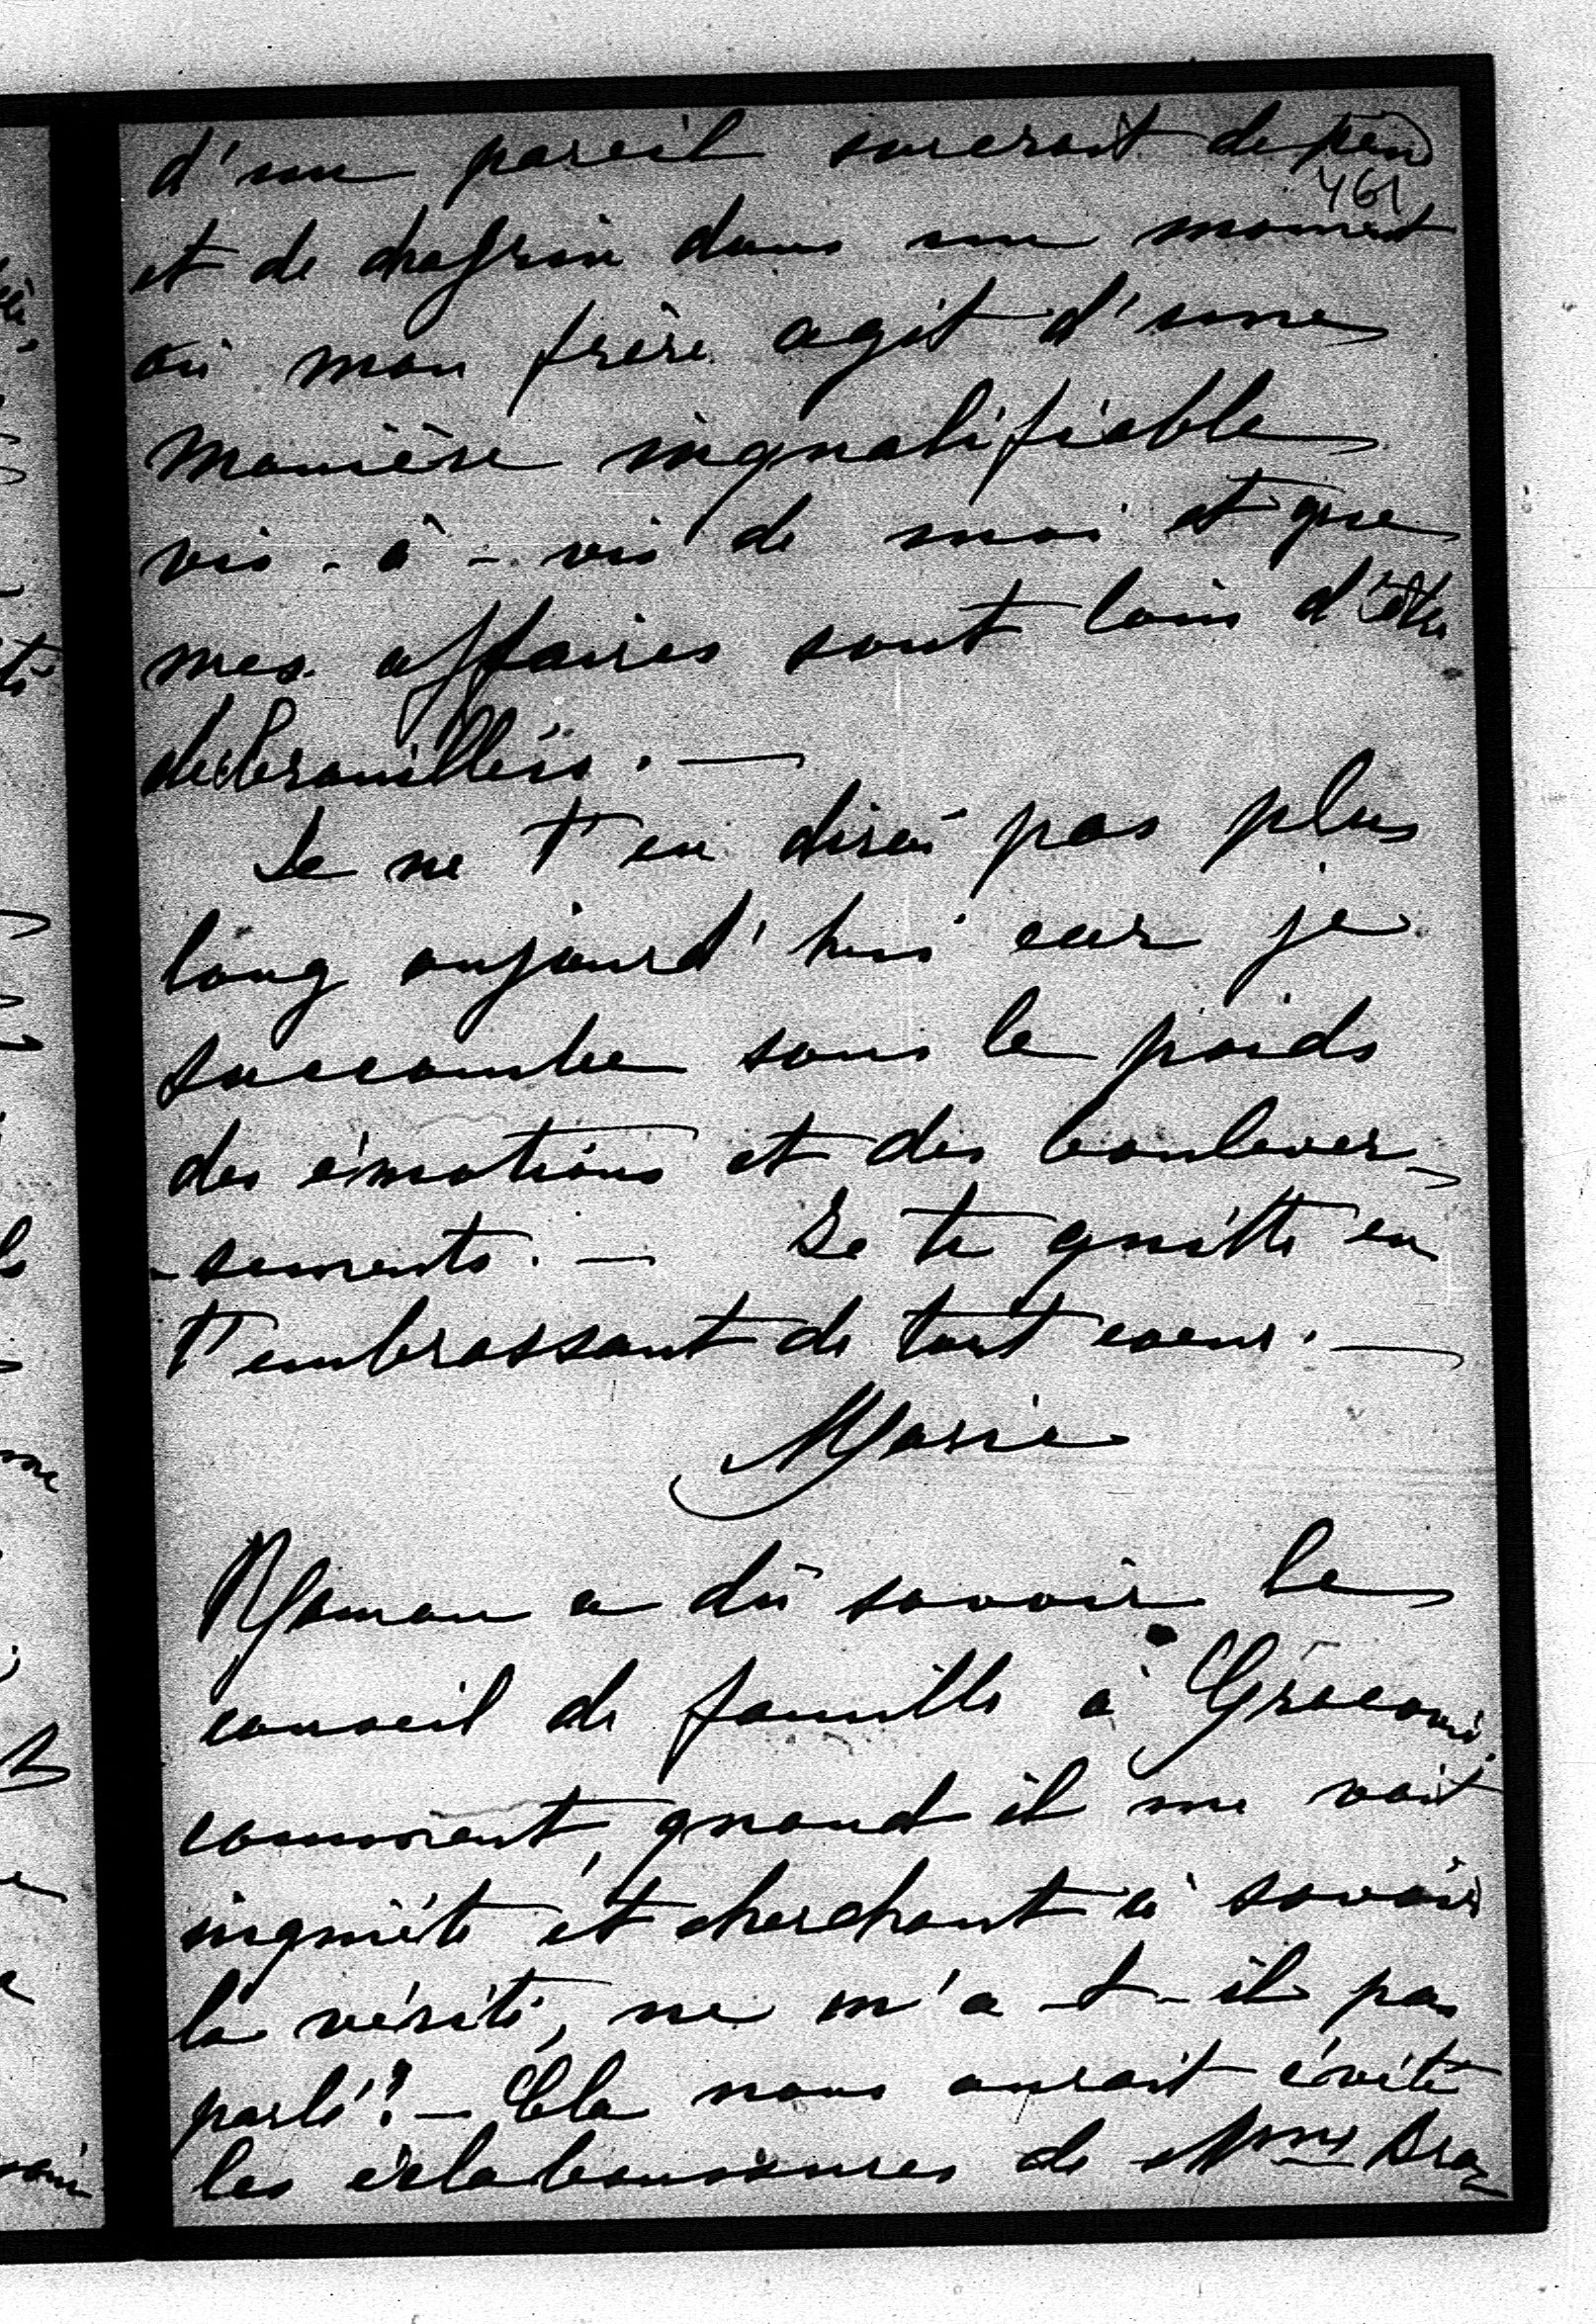 d'un pareil surcroit de pein
461
et de chagrin dans un moment
où mon frère agit d'une
manière inqualifiable
vis-à-vis de moi et que
mes affaires sont loin d'être
debrouillées. —
Je ne t'en dirai pas plus
long aujourd'hui car je
succombe sous le poids
des émotions et des boulever-
-sements. — Je te quitte en
t'embrassant de tout coeur. —
Marie
Maman a dû savoir le
conseil de famille à
comment, quand il me voit
inquiète et cherchant à savoir
la vérité, ne m'a-t-il pas
parlé? — Cela nous aurait évité
les éclaboussures de Mme